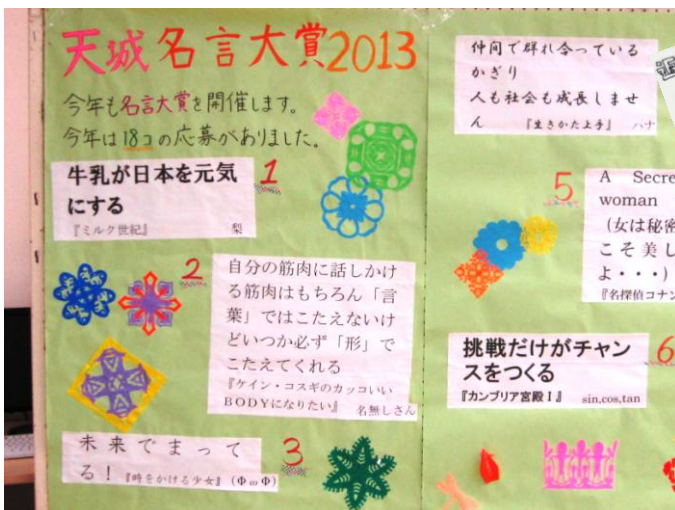 天城名言大賞2013
今年も名言大賞を開催します。
今年は18コの応募がありました。
牛乳が日本を元気
にする
『ミルク世紀』 梨
1
2
自分の筋肉に話しかけ
る筋肉はもちろん「言
葉」ではこたえないけ
どいつか必ず「形」で
こたえてくれる
『ケイン・コスギのカッコいい
BODYになりたい』 名無しさん
未来でまって
る！『時をかける少女』(ΦωΦ)
3
仲間で群れ合っている
かぎり
人も社会も成長しませ
ん 『生きかた上手』 ハナ
5
A Secre
woman
(女は秘密
こそ美し
よ・・・)
『名探偵コナン
挑戦だけがチャン
スをつくる
『カンブリア宮殿Ⅰ』 sin,cos,tan
6